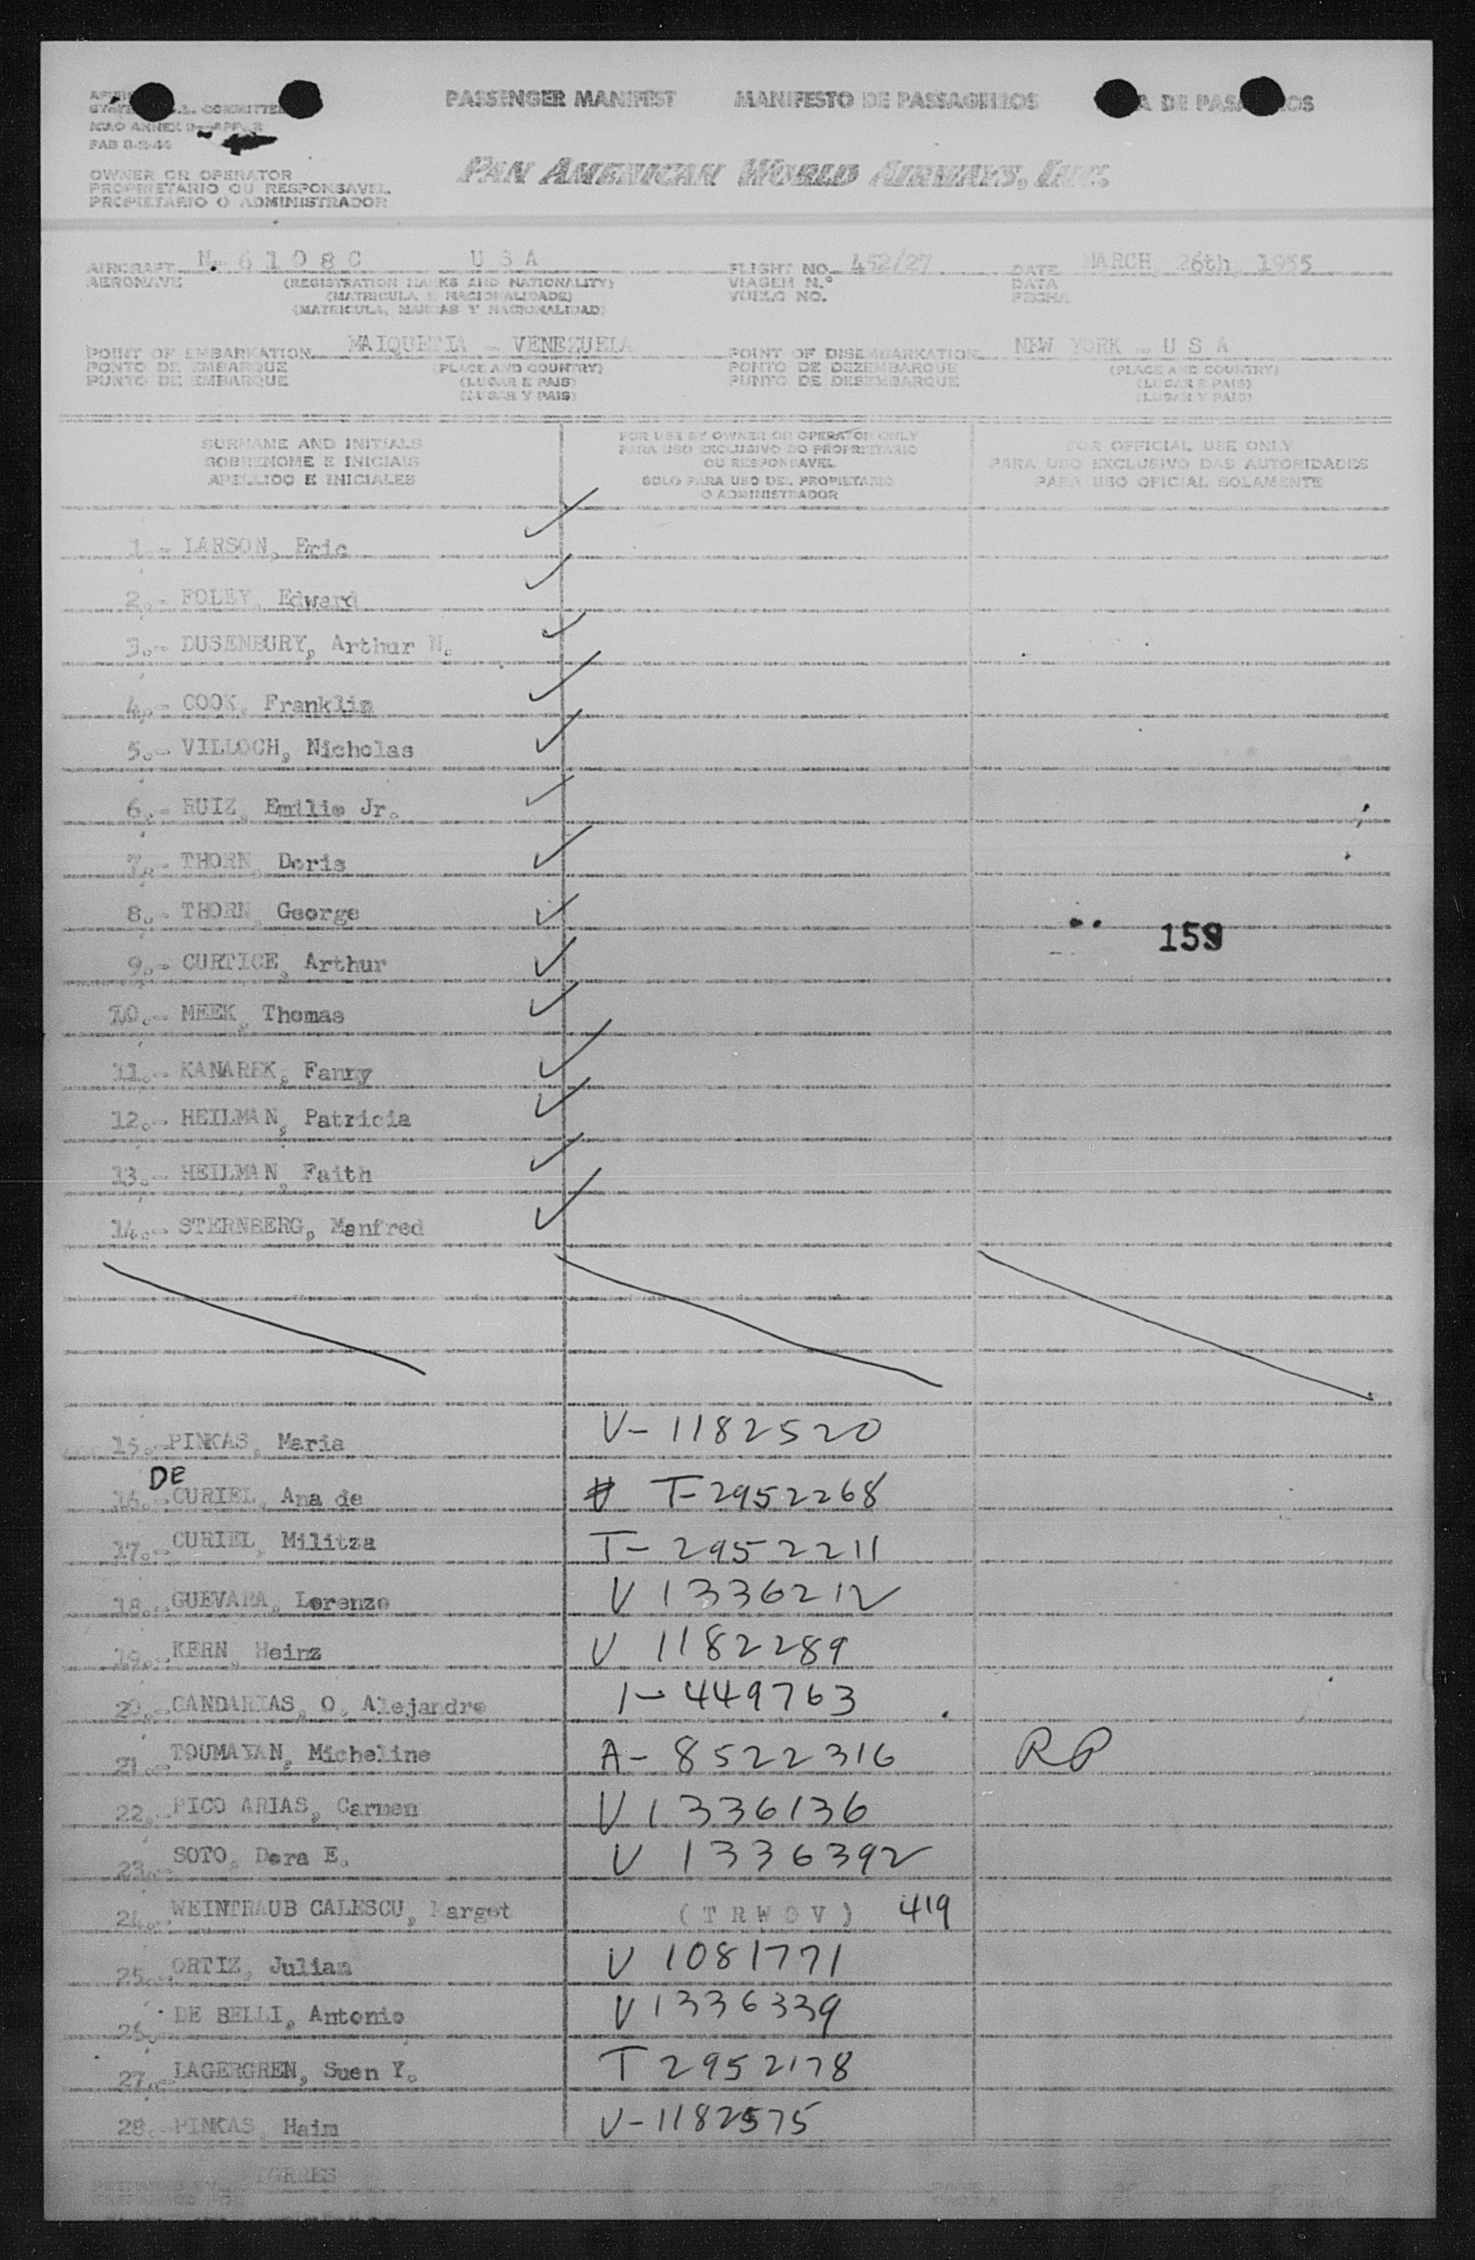 PASSENGER MANIFEST MANIFESTO DE PASSAGEIROS DE PASAJEROS
COMMITTEE
ICAO ANNEX 9
OWNER OR OPERATOR
PROPRIETARIO OU RESPONSAVEL
PROPIETARIO O ADMINISTRADOR
PAN AMERICAN WORLD AIRWAYS, INC.
AIRCRAFT N. 6108C USA FLIGHT NO. 452/27 DATE MARCH 26th, 1955
AERONAVE (REGISTRATION MARKS AND NATIONALITY) VIAGEM N.º DATA
(MATRICULA E NACIONALIDADE) VUELO NO. FECHA
(MATRICULA, MARCAS Y NACIONALIDAD)
POINT OF EMBARKATION MAIQUETIA - VENEZUELA POINT OF DISEMBARKATION NEW YORK - U S A
PONTO DE EMBARQUE (PLACE AND COUNTRY) PONTO DE DEZEMBARQUE (PLACE AND COUNTRY)
PUNTO DE EMBARQUE (LUGAR E PAIS) PUNTO DE DESEMBARQUE (LUGAR E PAIS)
(LUGAR Y PAIS) (LUGAR Y PAIS)
SURNAME AND INITIALS
SOBRENOME E INICIAIS
APELLIDO E INICIALES
FOR USE BY OWNER OR OPERATOR ONLY
PARA USO EXCLUSIVO DO PROPRIETARIO
OU RESPONSAVEL
SOLO PARA USO DEL PROPIETARIO
O ADMINISTRADOR
FOR OFFICIAL USE ONLY
PARA USO EXCLUSIVO DAS AUTORIDADES
PARA USO OFICIAL SOLAMENTE
1.- LARSON, Eric
2.- FOLEY, Edward
3.- DUSENBURY, Arthur N.
4.- COOK, Franklin
5.- VILLOCH, Nicholas
6.- RUIZ, Emilio Jr.
7.- THORN, Doris
8.- THORN, George
159
9.- CURTICE, Arthur
10.- MEEK, Thomas
11.- KANAREK, Fanny
12.- HEILMAN, Patricia
13.- HEILMAN, Faith
14.- STERNBERG, Manfred
15.- PINKAS, Maria V-1182520
DE
16.- CURIEL, Ana de T-2952268
17.- CURIEL, Militza T-2952211
18.- GUEVARA, Lorenzo V 1336212
19.- KERN, Heinz V 1182289
20.- CANDARIAS, O. Alejandro 1-449763
21.- TOUMAYAN, Micheline A-8522316 RP
22.- PICO ARIAS, Carmen V 1336136
23.- SOTO, Dora E. V 1336392
24.- WEINTRAUB CALESCU, Margot (TRWOV) 419
25.- ORTIZ, Julian V 1081771
26.- DE BELLI, Antonio V 1336339
27.- LAGERGREN, Suen Y. T 2952178
28.- PINKAS, Haim V-1182575